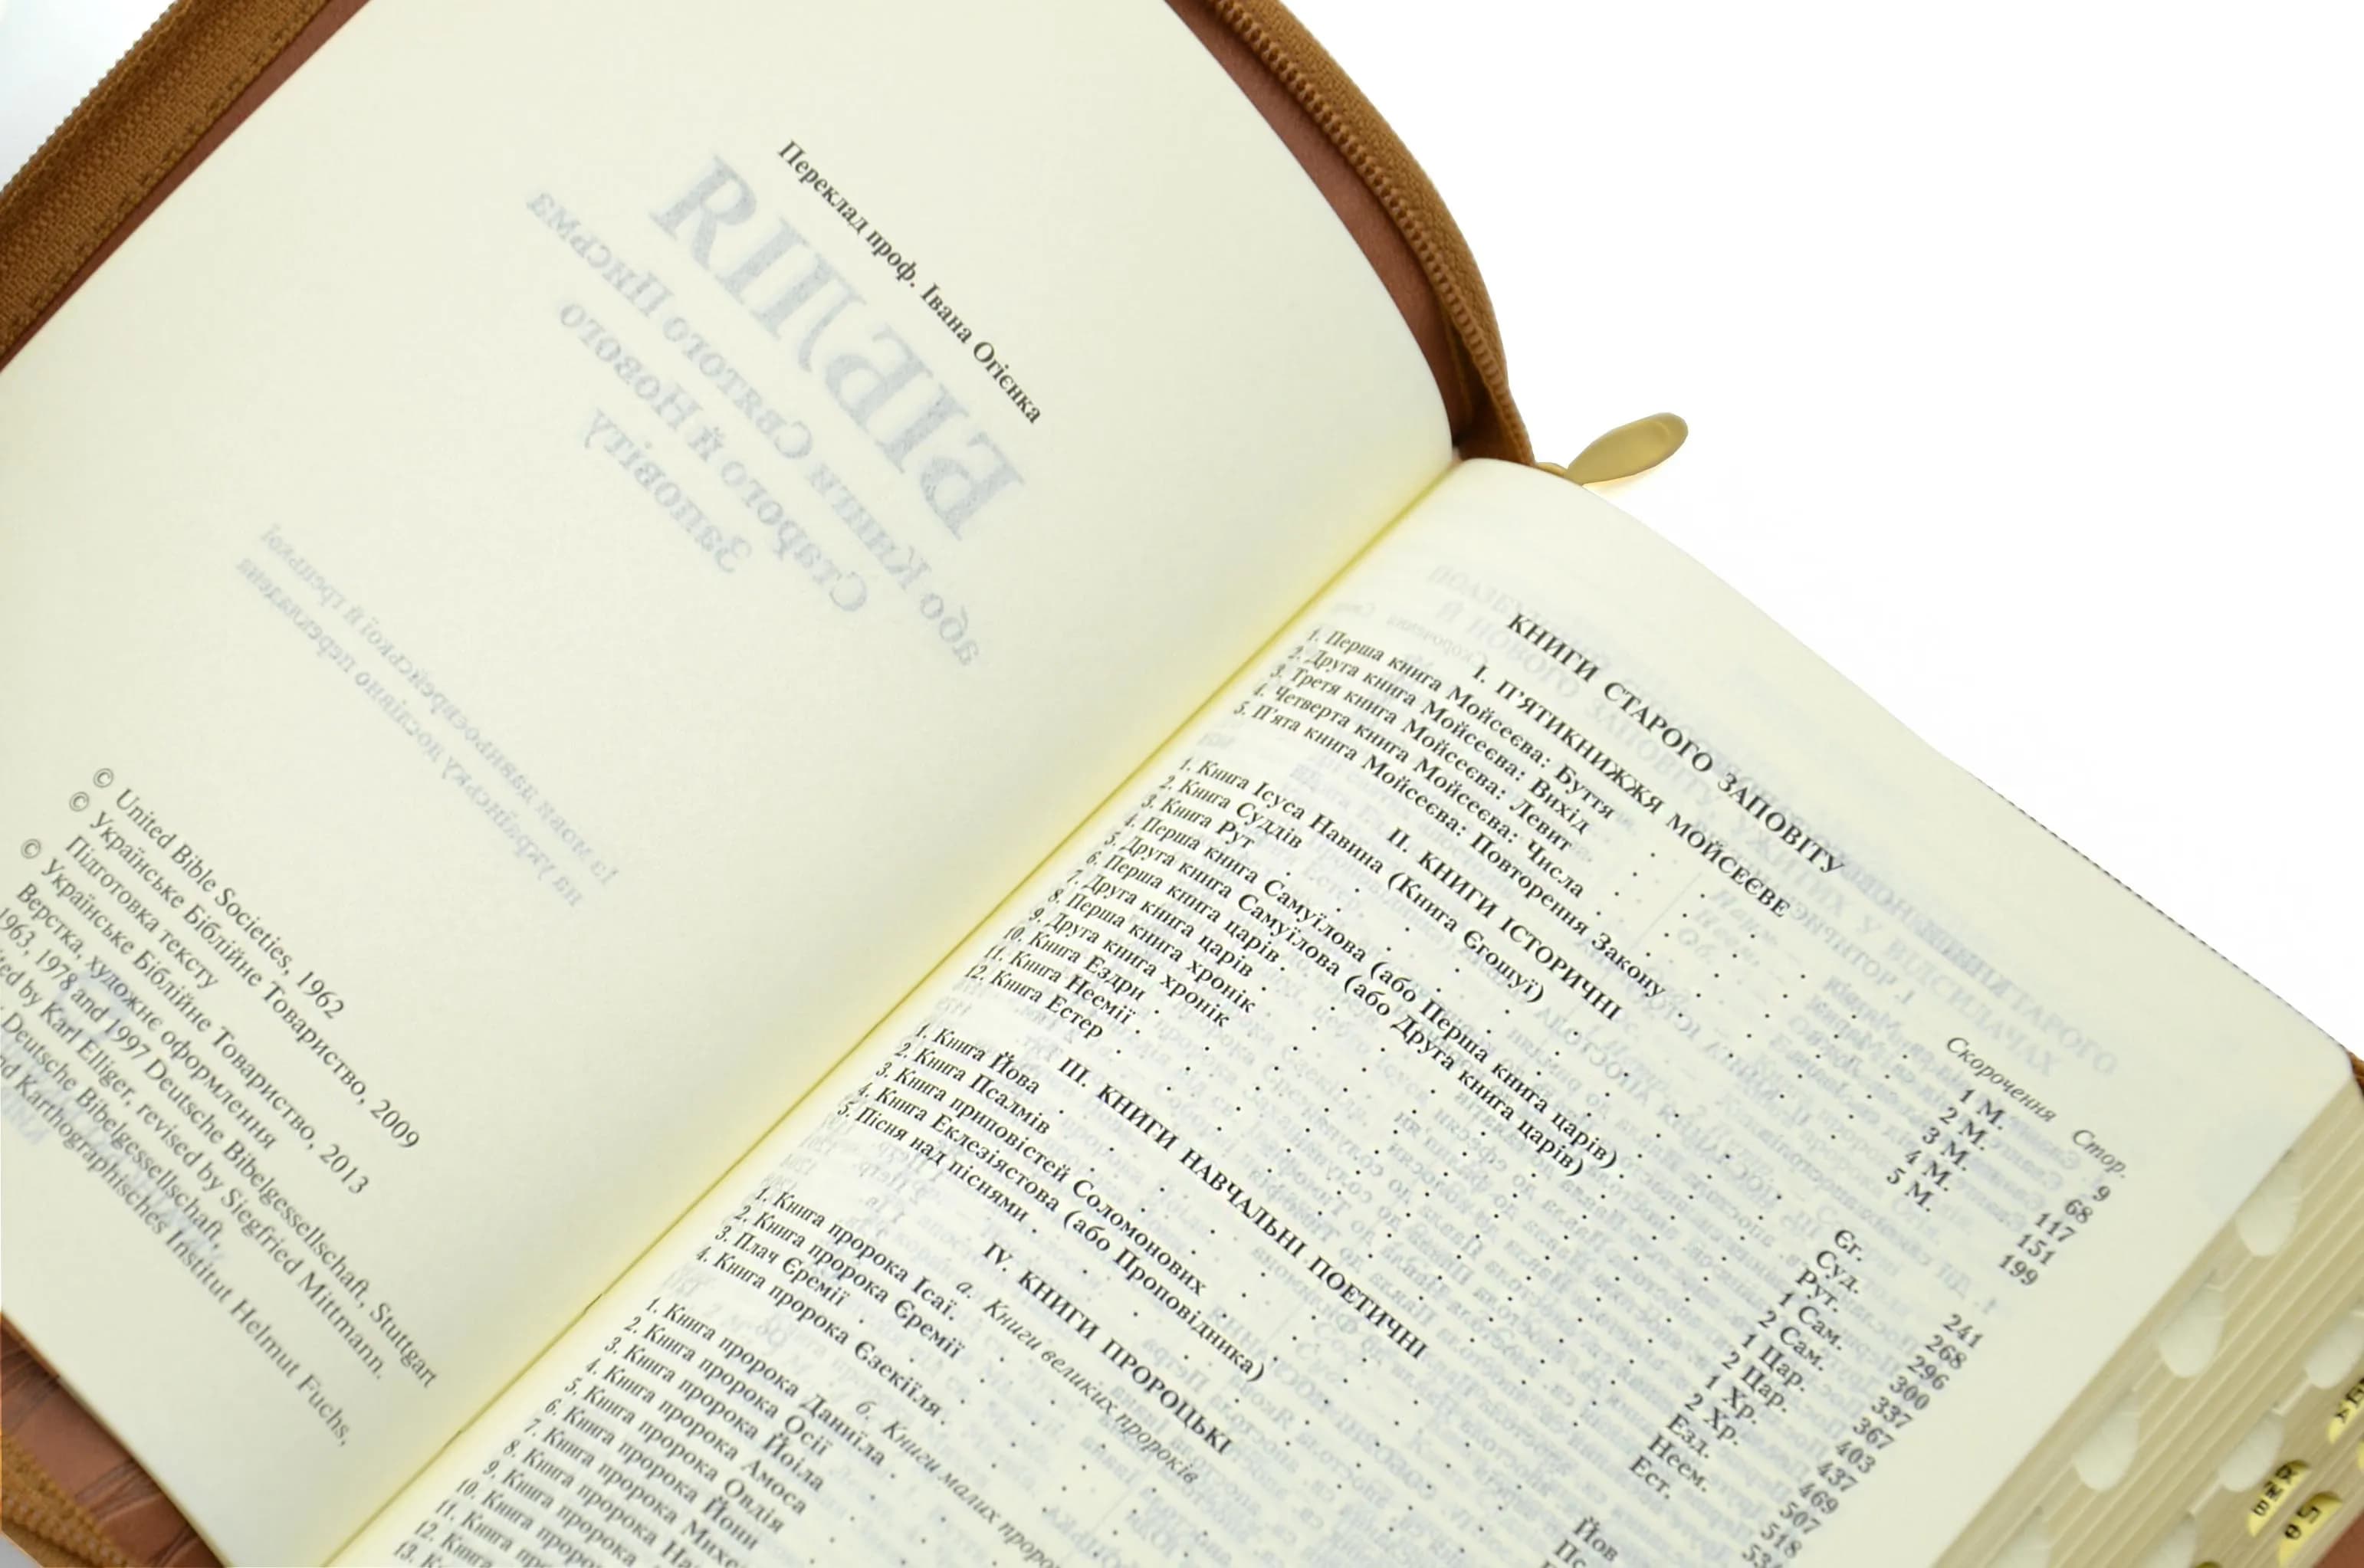 Переклад проф. Івана Огієнка
© United Bible Societies, 1962
© Українське Біблійне Товариство, 2009
Підготовка тексту
© Українське Біблійне Товариство, 2013
Верстка, художнє оформлення
1963, 1978 and 1997 Deutsche Bibelgesellschaft, Stuttgart
by Karl Elliger, revised by Siegfried Mittmann.
Deutsche Bibelgesellschaft,
Karthographisches Institut Helmut Fuchs,
КНИГИ СТАРОГО ЗАПОВІТУ
Скорочення Стор.
І. П'ЯТИКНИЖЖЯ МОЙСЕЄВЕ
1. Перша книга Мойсеєва: Буття 1 М. 9
2. Друга книга Мойсеєва: Вихід 2 М. 68
3. Третя книга Мойсеєва: Левит 3 М. 117
4. Четверта книга Мойсеєва: Числа 4 М. 151
5. П'ята книга Мойсеєва: Повторення Закону 5 М. 199
ІІ. КНИГИ ІСТОРИЧНІ
1. Книга Ісуса Навина (Книга Єгошуї) Єг. 241
2. Книга Суддів Суд. 268
3. Книга Рут Рут. 296
4. Перша книга Самуїлова (або Перша книга царів) 1 Сам. 300
5. Друга книга Самуїлова (або Друга книга царів) 2 Сам. 337
6. Перша книга царів 1 Цар. 367
7. Друга книга царів 2 Цар. 403
8. Перша книга хронік 1 Хр. 437
9. Друга книга хронік 2 Хр. 469
10. Книга Ездри Езд. 507
11. Книга Неемії Неем. 518
12. Книга Естер Ест.
ІІІ. КНИГИ НАВЧАЛЬНІ ПОЕТИЧНІ
1. Книга Йова Йов
2. Книга Псалмів Пс.
3. Книга приповістей Соломонових
4. Книга Еклезіястова (або Проповідника)
5. Пісня над піснями
IV. КНИГИ ПРОРОЦЬКІ
а. Книги великих пророків
1. Книга пророка Ісаї
2. Книга пророка Єремії
3. Плач Єремії
4. Книга пророка Єзекіїля
б. Книги малих
1. Книга пророка Даниїла
2. Книга пророка Осії
3. Книга пророка Йоіла
4. Книга пророка Амоса
5. Книга пророка Овдія
6. Книга пророка Йони
7. Книга пророка
8. Книга пророка
9. Книга пророка
10. Книга
11. Книга
12.
13.